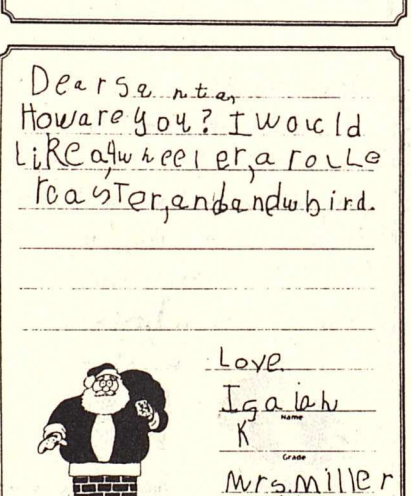 Dear Santa,
How are you? I would
Like a 4wheeler, a rolle
rcaster, and andw bird.
Love
Isaiah
Name
K
Grade
Mrs. Miller